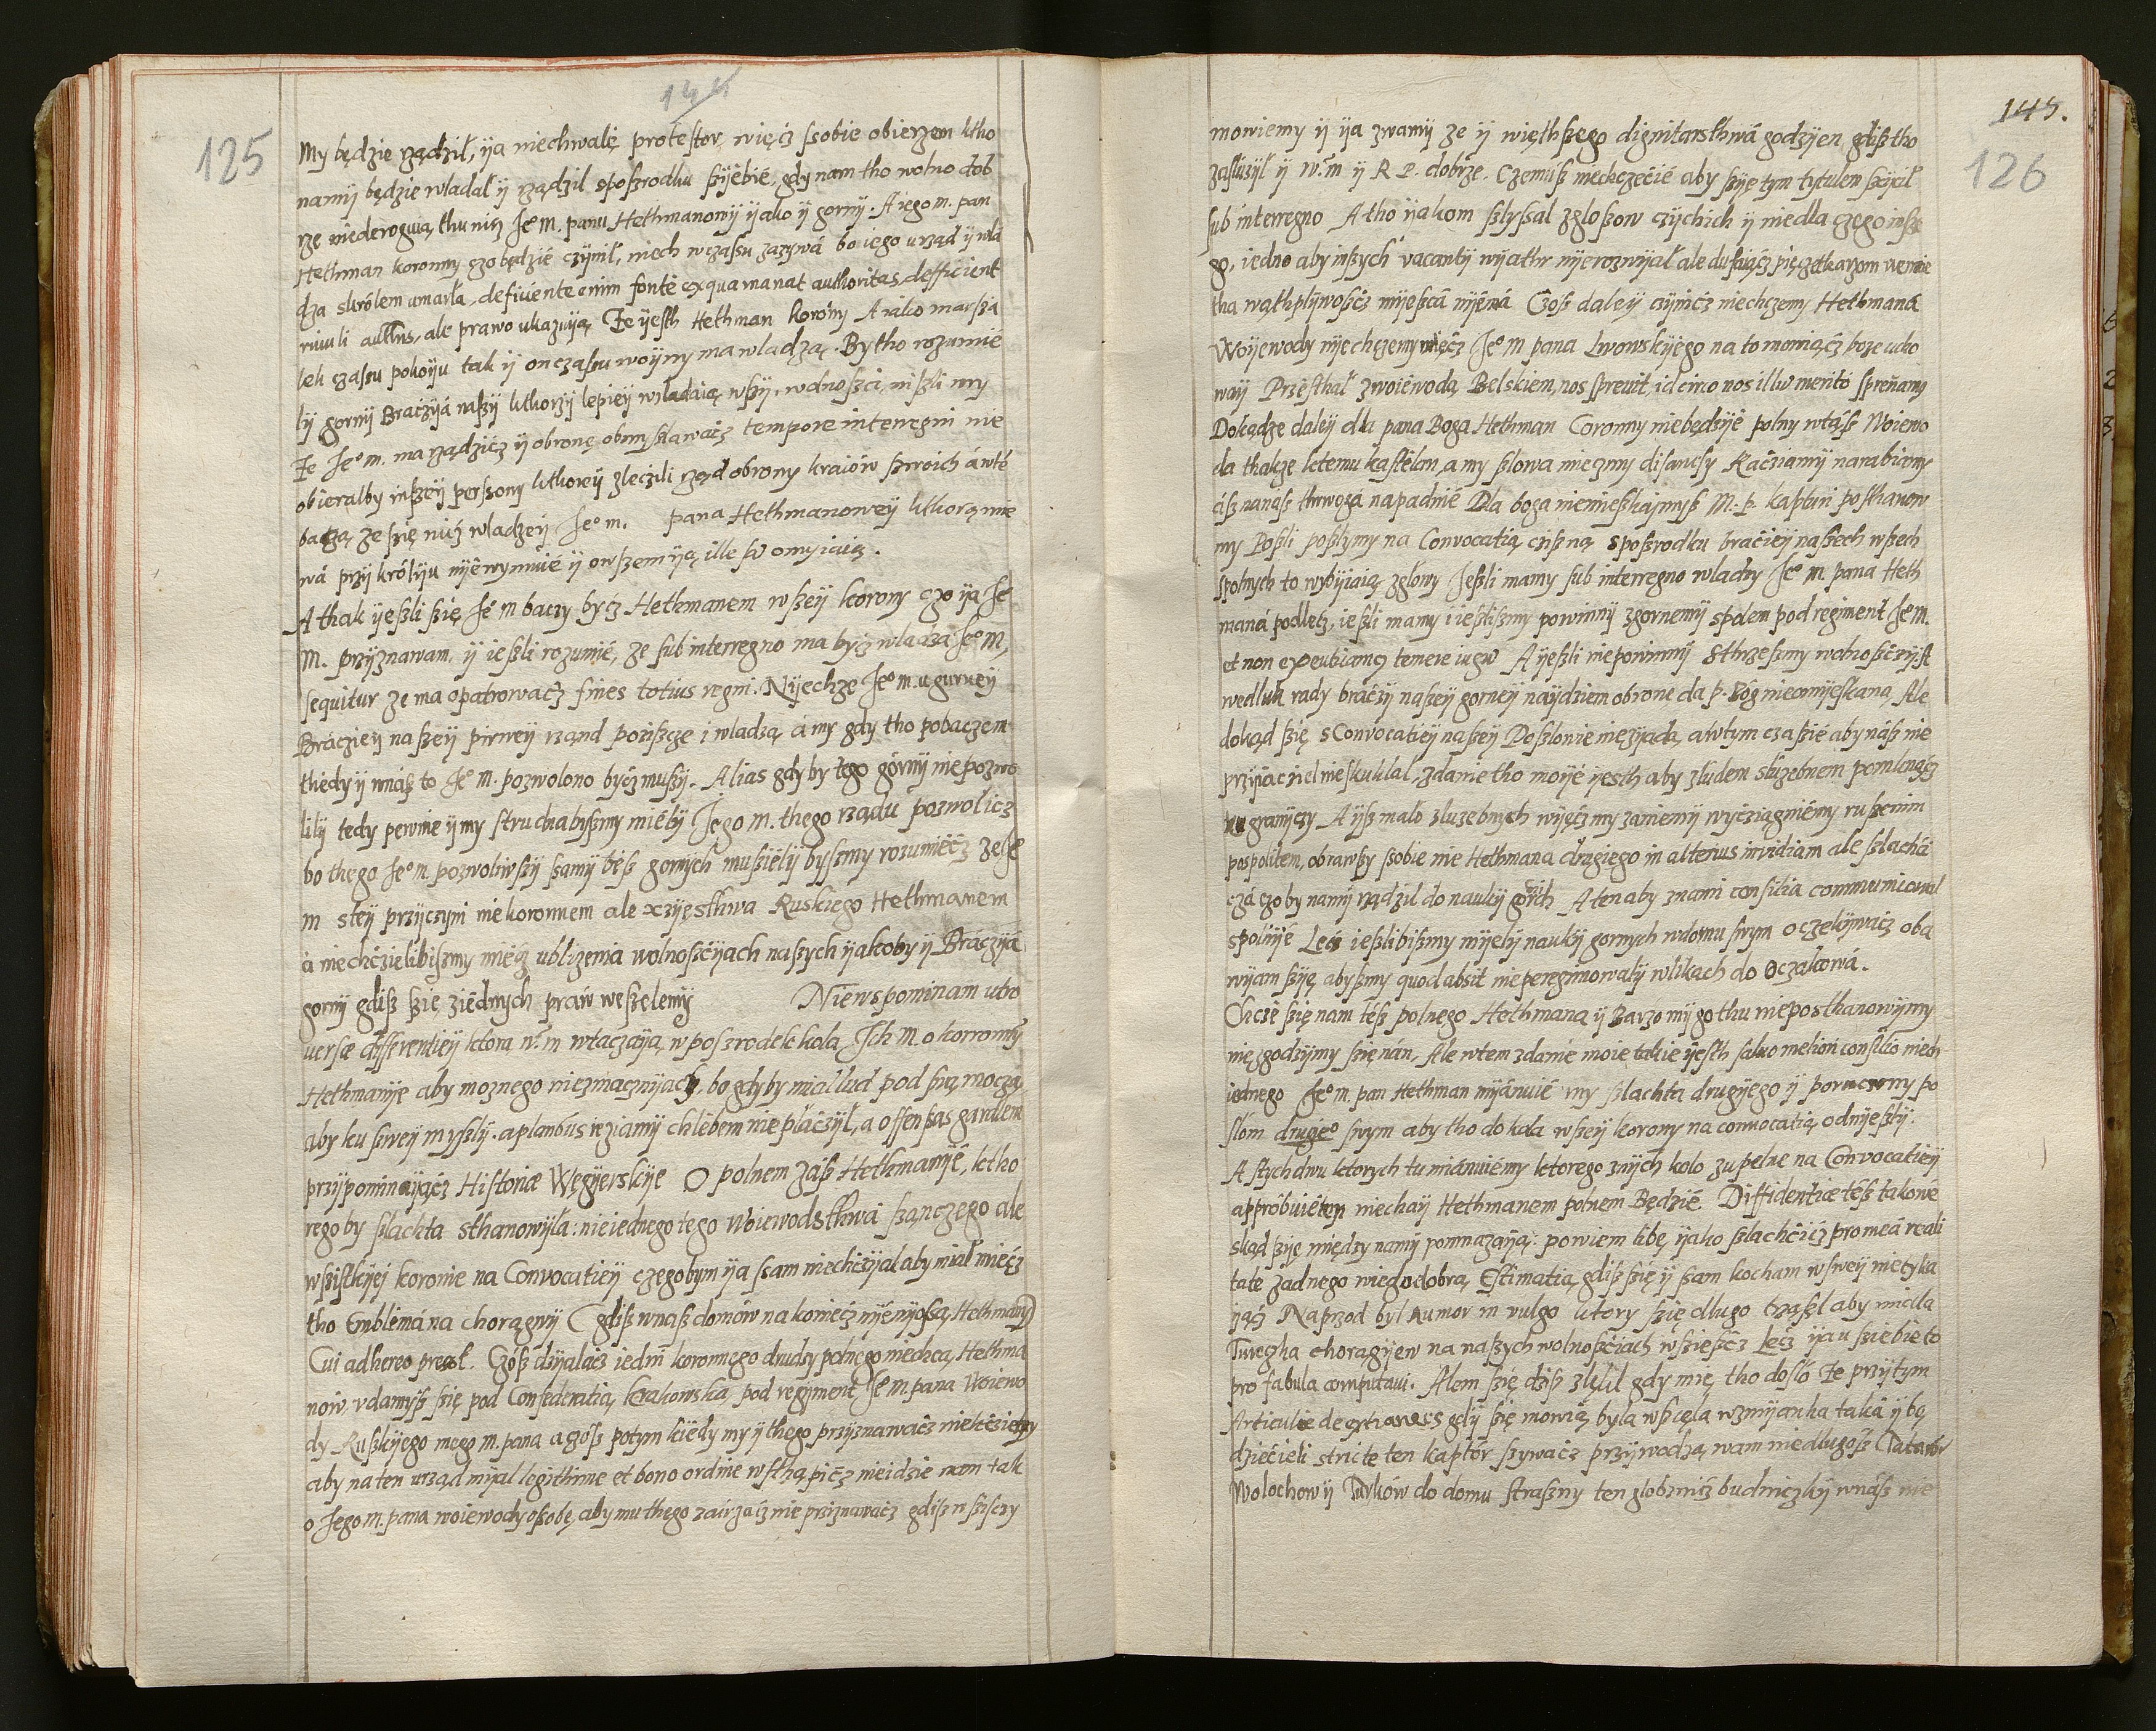 144
125
My będzie rządził, ija niechwalę protestor, więcz ssobie obierzem ktho
namij będzie wladał ij rządzil spossrodku ssijebie, gdy nam tho wolno dob
rze niederoguią thu nicz Je° M. panu Hethmanowij ijako ij gornij. A iego m. pan
Hethman koronny czo będzié czijnił, niech wczassu zazywá bo iego urząd ij wła
dza skrólem umarła, deficiente enim fonte ex qua manat authoritas, defficient
riuuli ale prawo ukazuiją Że ijesth Hethman korony A iako marsza
lek czassu pokoiju tak ij on czassu woijny ma wladzą. By tho rozumié
lij gornij Braczijá naszij kthorzij lepieij wladaią wszij. wolnosci, niszli my
Że Je° m. ma rządzicz ij obronę obmyslawacz tempore interegni nie
obieralby inszeij perssony kthoreij zleczili rząd obrony kraiów sswoich á wté
baczą ze się nicz wladzeij Je° m. pana Hethmanoweij kthorą mie
wá przij królyu nijé wymuié ij owszem iją ille
A thak ijeszli się Jé m baczy bycz Hethmanem wszeij korony czo ija Jé
M. przijznawam, ij ieszli rozumié, ze sub interregno ma bycz wladza Je° M,
sequitur ze ma opatrowacz fines totius regni. Nijechze Je° m. u gurneij
Bracziej naszeij pirweij rząnd poziszcze i wladzą á my gdy tho pobaczem
thedy ij unas to Je° M. pozwolono bycz musij. Alias gdy by tego górnij niepozwo
lilij tedy pewnie ij my strudnabysmy mieli Jego m. thego rządu pozwolicz
bo thego Je° m. pozwoliwszij samij bész gornych musielij byszmy rozumiécz zeJé
m steij przijczyni nie koronnem ale xzijęsthwa Ruskiego Hethmanem
á niechczielibiszmy miécz ublizenia wolnoscijach naszych ijakoby ij Braczijá
gornij gdisz się ziednych praw weszelemij Niewspominam utro
uersæ differentieij ktora w. m wtaczaiją w poszrodek kola, Ich M. o korronnym
Hethmanije aby moznego niezmacznijach, bo gdyby miał lud pod swą moczą
aby ku swej myslij. a planbus ieziamij chlebem nie placzijl, a offensas gardlem
przijpominaijącz Historiæ Węgijerskije O polnem zász Hethmanijé, ktho
rego by slachta sthanowijła: nie iednego tego Woiewodsthwá sząnczego ale
wszistkijej koronie na Convocatieij czegobym ija sam niechczijał aby miał miécz
tho Emblemá na chorągwij (gdisz wnasz domów na koniecz nijé nijosą Hethmany)
Cui adhereo Czósz dzijalacz iednim koronnego drudzy polnego niechcą Hethma
nów, vdamysz się pod Confederatią krakowską pod regijment Je° M. pana Woiewo
dy Ruskijego mego m. pana a czósz potym kiédy my ij thego przijznawacz niechcziemy
aby na ten urząd mijal legithime et bono ordine wsthąpicz nie idzie nam tak
o Jego m. pana woiewody osobę, aby mu thego zairzacz nie prziznawacz gdisz wszisczy
145.
126
mowiemy ij ija zwamij ze ij więthszego dignitarsthwá godzijen, gdisz tho
zasluzijl ij w. m ij R P. dobrze. Czemusz niechczecié aby szije tym tytulem szczijcil
sub interregno A tho ijakom slyssal zglosow czijchich ij niedla czego insze
go, iedno aby inszych vacantij wijathr nijerozwijał ale dufaiącz pięczetharzom
tha wąthplijwoszcz mijesca nijéma Czosz daleij czijnicz niechczemy Hethmaná
Woijewody nijechczemy więcz Je° m pana Lwowskijego na to mowiącz boze ucho
waij Przesthał zwoiéwodą Belskiem, nos spreuit, id circo nos illum merito
Dokądze daleij dla pana Boga Hethman Coronny niebędzijé polny wtász Woiewo
da thakze ktemu kastélan, a my slowa mieczmy Kácziamij narabiamy
ász nanász thrwogá napadnié Dla boga niemieszkajmysz M. P. kaptur posthanow
my Poszli poszlymy na Convocatią czisną spossrodku braciej naszech wszech
spolnych to wybijaią zglowy Jeszli mamy sub interregno wladzy Je° m. pana Heth
maná podlecz, ieszli mamy i ieszlissmy powinnij zgornemij spolem pod regiment Je M.
et non temere iugum A ijeszli niepowinnij Sthrzeszmy wolnosczijsz
wedluk rady bráczij naszeij gorneij naijdziem obrone da P. Bóg nieomijeszkaną Ale
dokąd się sConvocatieij naszeij Poszlowie niezijadą, a wtym czasié aby nász nie
przijaciel nieskukłal, zdanie tho moijé ijesth aby zludem sluzebnem pomknącz
ku granijczy A ijsz malo sluzebnych wijęcz my zaniemij wyczijągniemy ruszenim
pospolitem, obrawszy ssobie nie Hethmana drugiego in alterius invidiam ale slachci
czá czo by namij rządzil do naukij górnich A ten aby znami consilia communicował
spolnijé Lecz ieszlibiszmy mijelij naukij gornych wdomu swym oczekijwacz oba
wijam szijé abyssmy quod absit nieperegrinowalij włikach do Oczakowá.
Chcze się nam tész polnego Hethmana ij Barzo mij go thu nieposthanowijmy
niezgodzijmy się nán, Ale wtem zdanié moie takie ijesth saluo meliori consilio niech
iednego Je° m. pan Hethman mijánuié my szlachta drugijego ij poruczmy po
słom drugie° swym aby tho do kola wszeij korony na convocatią odnijeslij:
A stych dwu ktorych tu miánuiémy ktorego znijch kolo zupelne na Convocatieij
appróbuié ten niechaij Hethmanem polnem Będzié Diffidentiæ tész takowé
skąd szije między namij pomnazaiją: powiem libę ijako szlachcicz pro mea reali
tate zadnego niegodobrą Estimatią gdisz się ij sam kocham w sweij nietyka
iącz Naprzod był Rumor in vulgo ktory się długo trząsl aby miała
Turegha choragijew na naszych wolnosciach wsziesćz Lecz ija u siebie to
pro fabula computaui. Alem się dzisz zlękl gdy mię tho doszło Że przij tym
Articule de extraneis gdij się mowią była wszczęla wzmijanka taká ij bę
dziecieli stricte ten kaptór szywacz przijwodzą wam niedlugosz Tatarów
Wolochow ij Turków do domu straszny ten zlobznicz budniczkij wnász nie